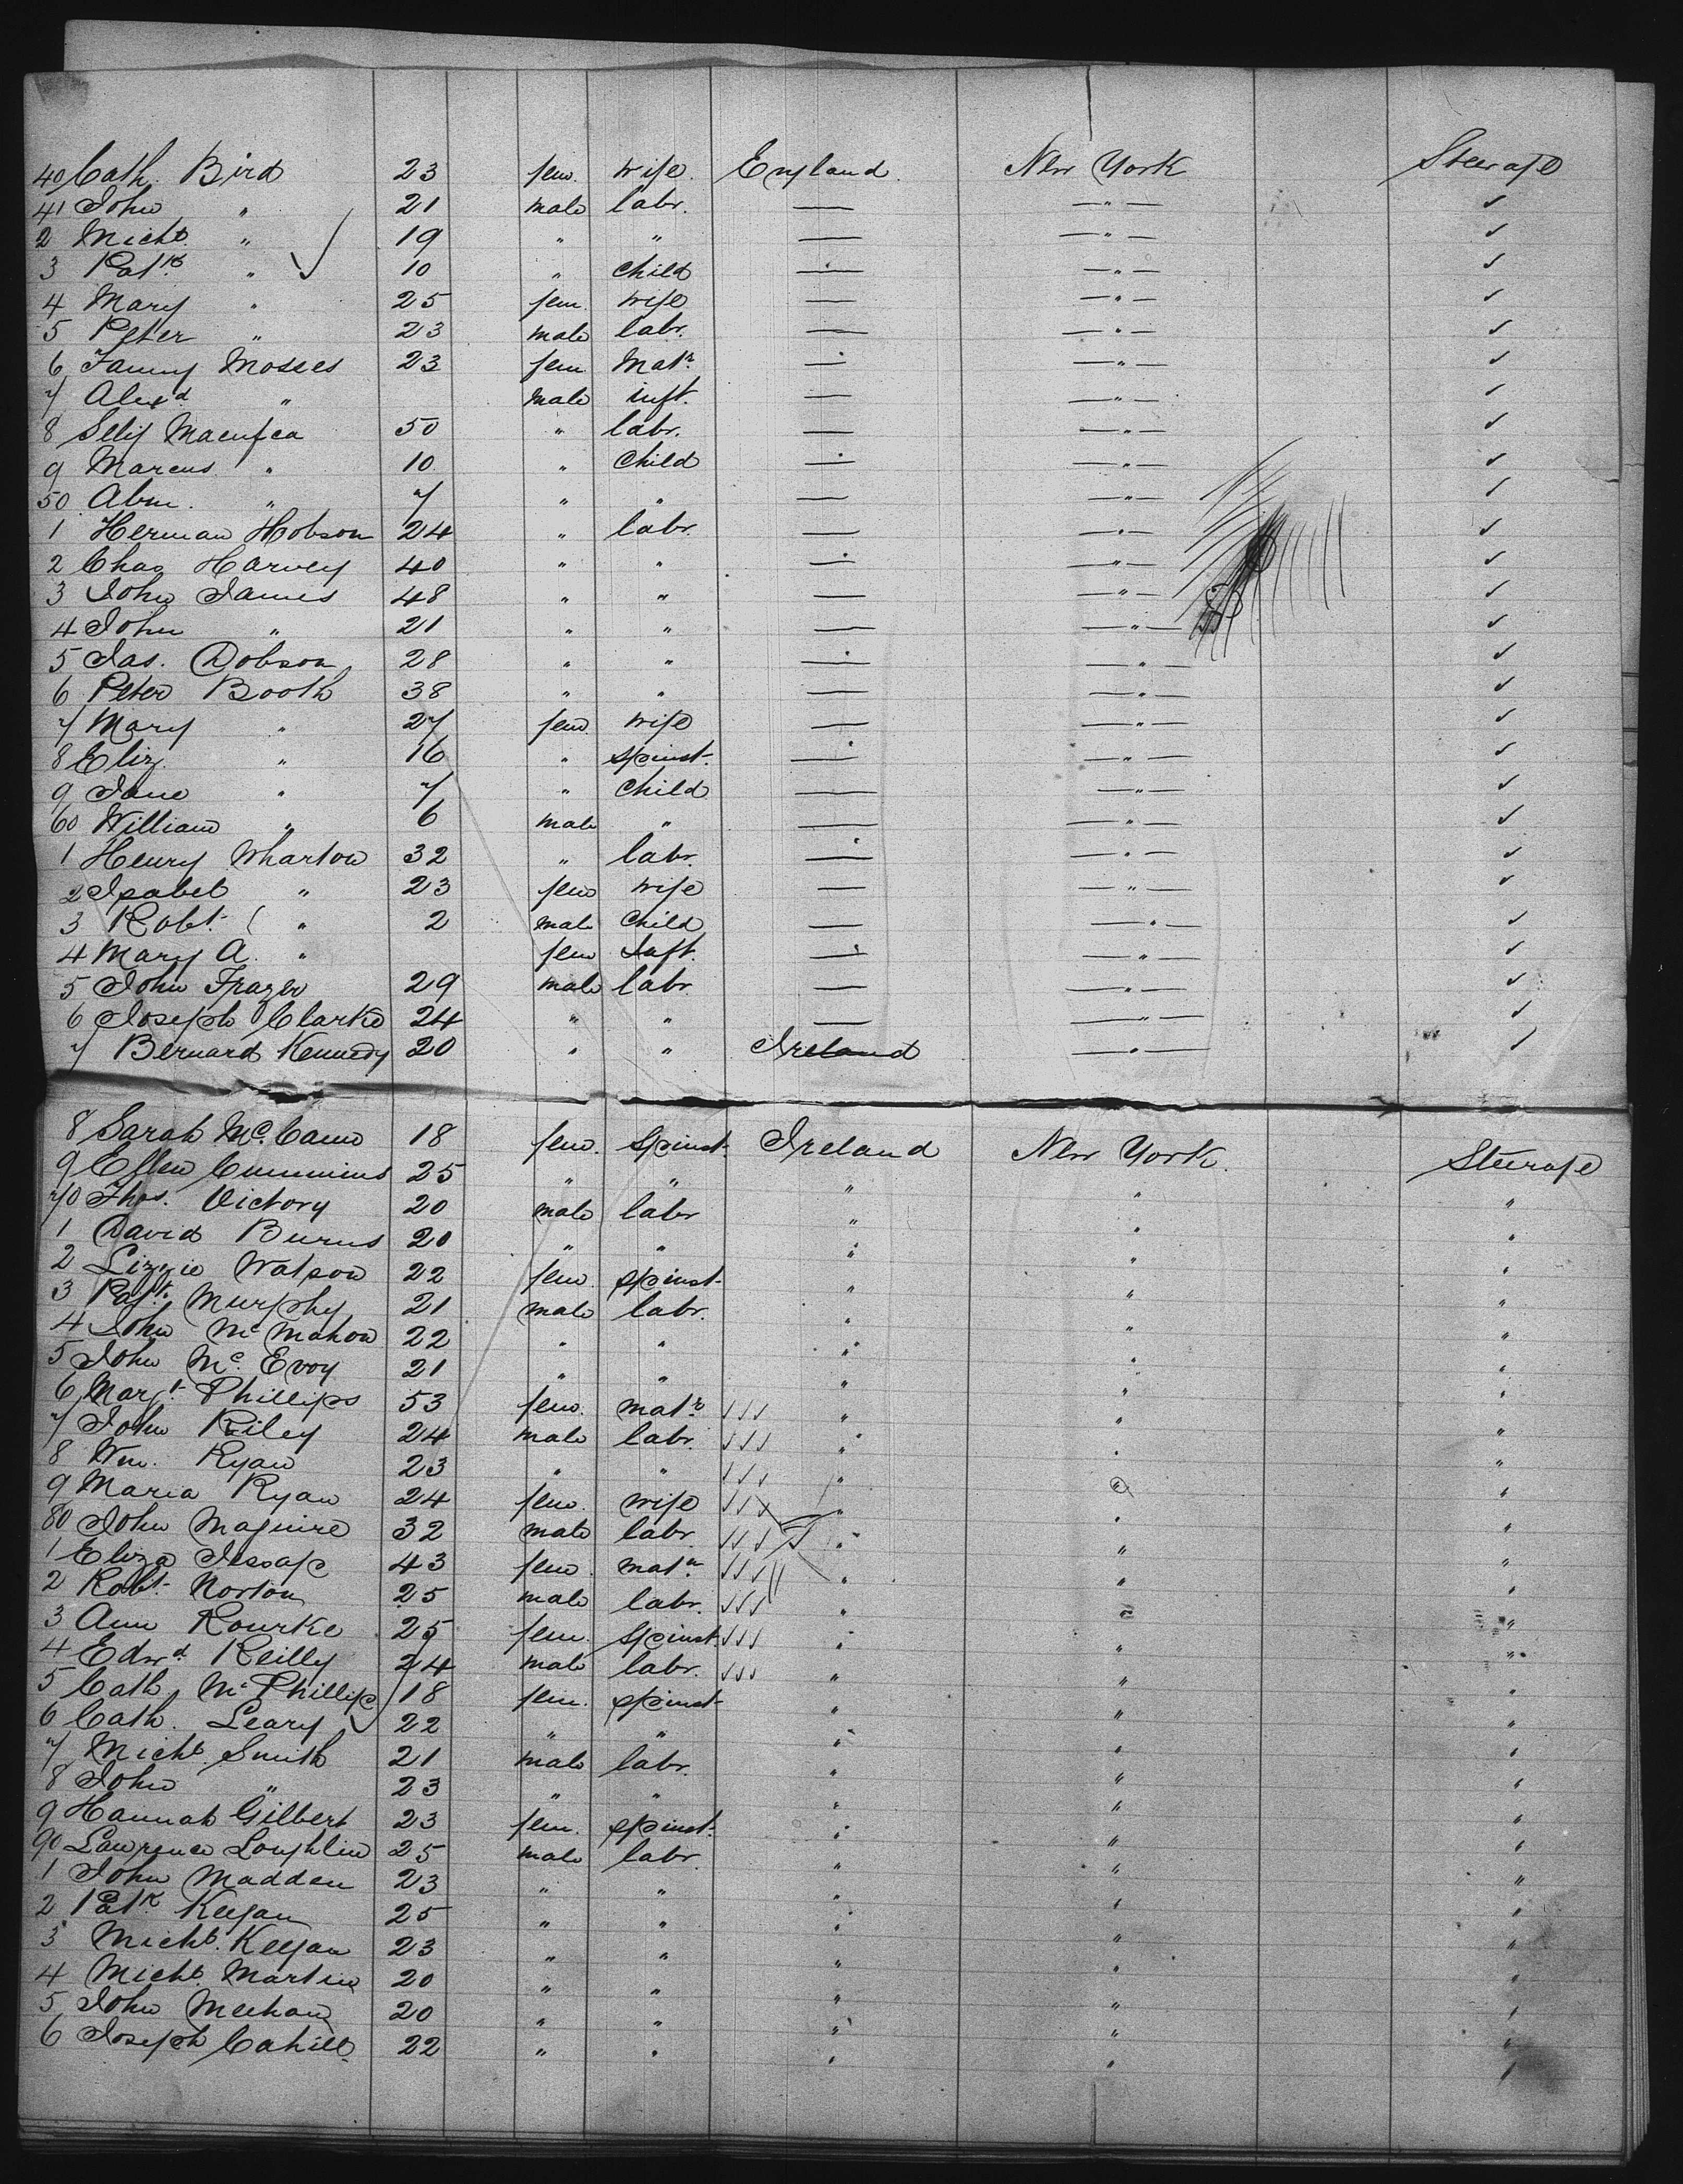 40 Cath. Bird 23 fem. wife. England. New York Steerage
41 John " 21 male labr. — —"— ✓
2 Michl. " 19 " " — —"— ✓
3 Patk. " 10 " child — —"— ✓
4 Mary " 25 fem. wife — —"— ✓
5 Peter " 23 male labr. — —"— ✓
6 Fanny Moses 23 fem Matr. — —"— ✓
7 Alexd. " male inft. — —"— ✓
8 50 " labr. — —"— ✓
9 Marcus " 10 " Child — —"— ✓
50 Abm. " 7 " " — —"— ✓
1 Herman Hobson 24 " labr. — —"— ✓
2 Chas Harvey 40 " " — —"— ✓
3 John James 48 " " — —"— ✓
4 John " 21 " " — —"— ✓
5 Jas. Dobson 28 " " — —"— ✓
6 Peter Booth 38 " " — —"— ✓
7 Mary " 27 fem wife — —"— ✓
8 Eliz. " 16 " spinst. — —"— ✓
9 Jane " 7 " Child — —"— ✓
60 William " 6 male " — —"— ✓
1 Henry Wharton 32 " labr. — —"— ✓
2 Isabel " 23 fem wife — —"— ✓
3 Robt. " 2 male Child — —"— ✓
4 Mary A. " fem Inft. — —"— ✓
5 John Frazer 29 male labr. — —"— ✓
6 Joseph Clarke 24 " " — —"— ✓
7 Bernard Kennedy 20 " " Ireland —"— ✓
8 Sarah McCann 18 fem. Spinst. Ireland New York. Steerage
9 Ellen Cummins 25 " " " " "
70 Thos. Victory 20 male labr " " "
1 David Burns 20 " " " " "
2 Lizzie Watson 22 fem spinst. " " "
3 Patk. Murphy 21 male labr. " " "
4 John McMahon 22 " " " " "
5 John Mc.Evoy 21 " " " " "
6 Margt. Phillips 53 fem. matr. " " "
7 John Riley 24 male labr. " " "
8 Wm. Ryan 23 " " " " "
9 Maria Ryan 24 fem. wife " " "
80 John Maguire 32 male labr. " " "
1 Eliza Jessap 43 fem. matn. " " "
2 Robt. Norton 25 male labr. " " "
3 Ann Rourke 25 fem. Spinst. " " "
4 Edwd. Reilly 24 male labr. " " "
5 Cath McPhillip 18 fem. spinst. " " "
6 Cath. Leary 22 " " " " "
7 Michl. Smith 21 male labr. " " "
8 John " 23 " " " " "
9 Hannah Gilbert 23 fem. spinst. " " "
90 Lawrence Loughlin 25 male labr. " " "
1 John Madden 23 " " " " "
2 Patk. Keegan 25 " " " " "
3 Michl. Keegan 23 " " " " "
4 Michl. Martin 20 " " " " "
5 John Meehan 20 " " " " "
6 Joseph Cahill 22 " " " " "